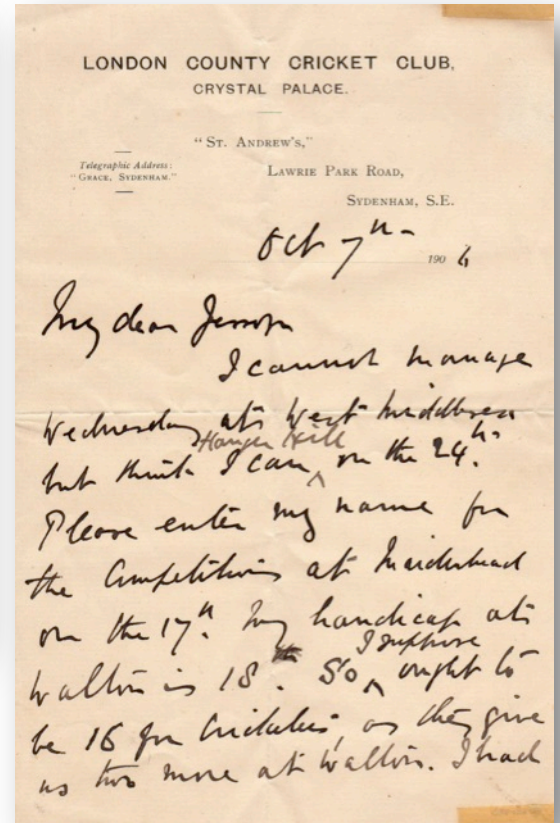 LONDON COUNTY CRICKET CLUB,
CRYSTAL PALACE.
"ST. ANDREW'S,"
Telegraphic Address:
"GRACE, SYDENHAM."
LAWRIE PARK ROAD,
SYDENHAM, S.E.
Oct 7th
190 6
My dear Jessop
I cannot manage
Wednesday at West Middlesex
Hanger Hill
but think I can ^ on the 24th.
Please enter my name for
the Competitions at Maidenhead
on the 17th. My handicap at
I suppose
Walton is 18. So ^ ought to
be 16 for Cricketers, as they give
us two more at Walton. I had